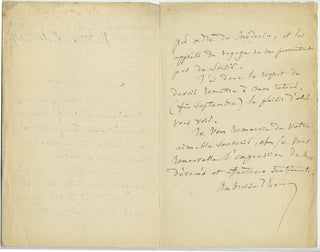 par ordre du Médecin, et les
apprêts de voyage ne me permettent
pas de sortir.
J'ai donc le regret de
devoir remettre à mon retour,
(fin Septembre) le plaisir d'aller
vous voir.
Je vous remercie de votre
aimable souvenir, et je vous
renouvelle l'expression de mes
dévoués et affectueux sentiments.
Ambroise Thomas